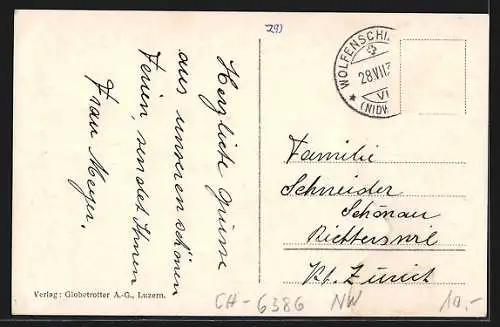 293
Herzliche Grüsse
aus unseren schönen
Ferien, sendet Ihnen
Frau Meyer.
WOLFENSCHI
28.VII.3
VI
(NIDW.
Familie
Schneider
Schönau
Richterswil
Kt. Zürich
Verlag: Globetrotter A.-G., Luzern.
CH-6386 NW 10.-